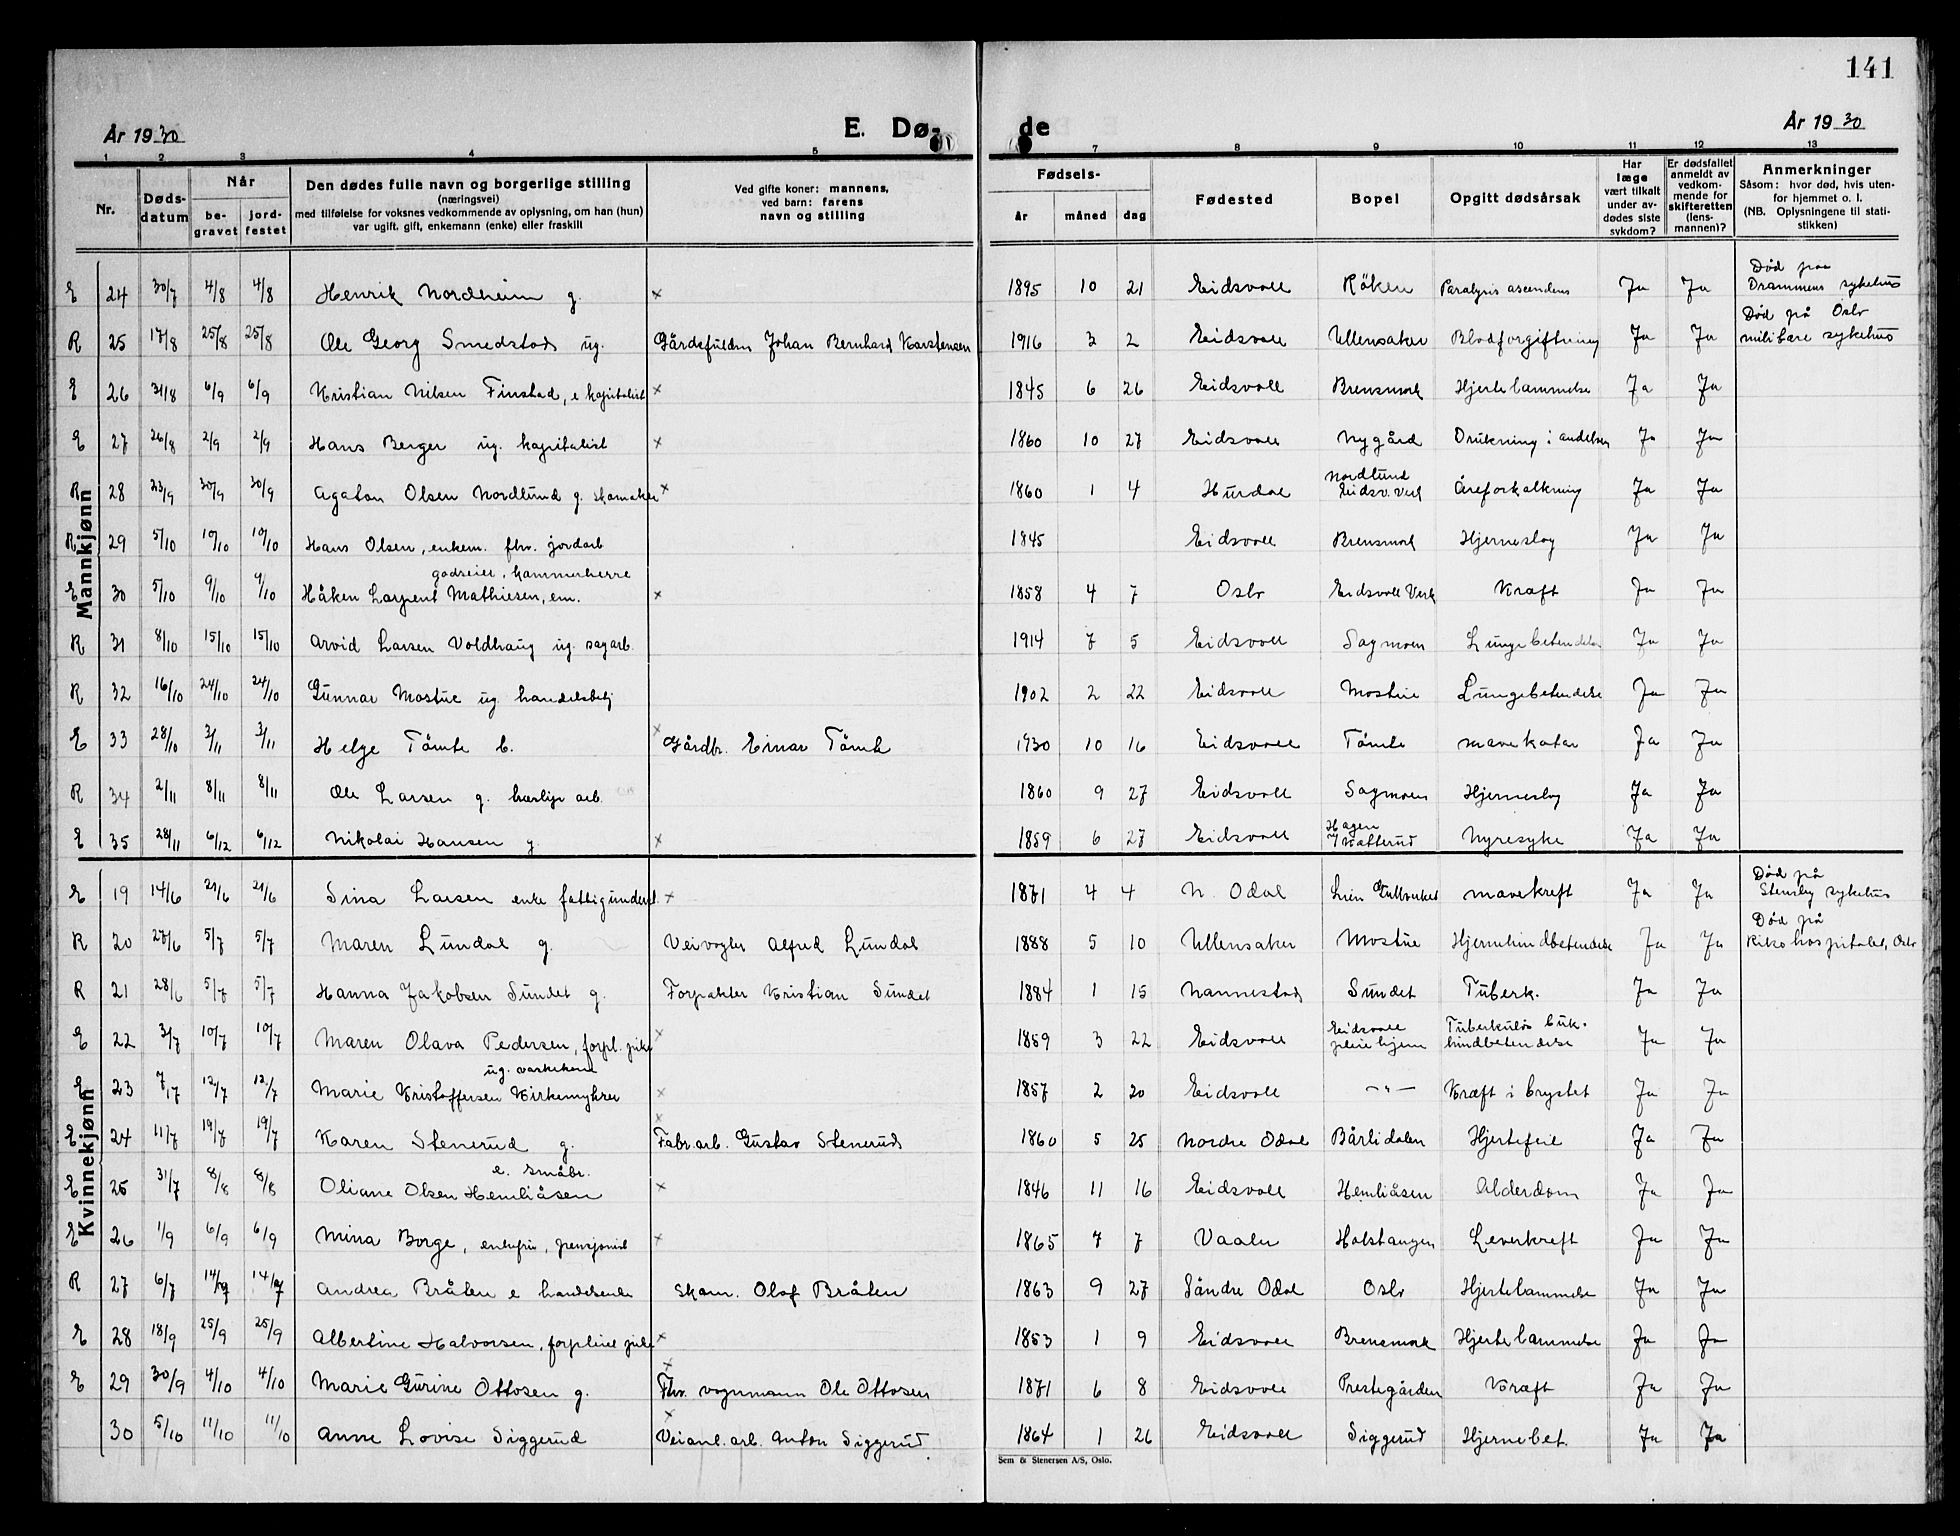 141
År 1930 E. Dø- de År 1930
1 2 3 4 5 7 8 9 10 11 12 13
Nr. Døds-datum Når be-gravet jord-festet Den dødes fulle navn og borgerlige stilling (næringsvei) med tilføielse for voksnes vedkommende av oplysning, om han (hun) var ugift. gift, enkemann (enke) eller fraskill Ved gifte koner: mannens, ved barn: farens navn og stilling Fødsels- år måned dag Fødested Bopel Opgitt dødsårsak Har læge vært tilkalt under av-dødes siste sykdom? Er dødsfallet anmeldt av vedkom-mende for skifteretten (lens-mannen)? Anmerkninger Såsom: hvor død, hvis uten-for hjemmet o. l. (NB. Oplysningene til stati-stikken)
Mannkjønn
E 24 30/7 4/8 4/8 Henrik Nordheim g. x 1895 10 21 Eidsvoll Röken Paralysis ascendens Ja Ja Död paa Drammens sykehus
R 25 17/8 25/8 25/8 Ole Georg Smedstad ug. Johan Bernhard Karstensen 1916 3 2 Eidsvoll Ullensaker Blodforgiftning Ja Ja Död på Oslo militære sykehus
E 26 31/8 6/9 6/9 Kristian Nilsen Finstad, e kapitalist x 1845 6 26 Eidsvoll Brensmork Hjertelammelse Ja Ja
E 27 26/8 2/9 2/9 Hans Berger ug. kapitalist x 1860 10 27 Eidsvoll Nygård Drukning i andelven Ja Ja
R 28 23/9 30/9 30/9 Agaton Olsen Nordlund g. skomaker x 1860 1 4 Hurdal Nordlund Eidsv. Verk Åreforkalkning Ja Ja
R 29 5/10 10/10 10/10 Hans Olsen, enkem. fhv. jordarb 1845 Eidsvoll Brensmork Hjerneslag Ja Ja
godseier, kammerherre
E 30 5/10 9/10 9/10 Håken Larpent Mathiesen, em. x 1858 4 7 Oslo Eidsvoll Verk Kræft Ja Ja
R 31 8/10 15/10 15/10 Arvid Larsen Voldhaug ug. sagarb. 1914 7 5 Eidsvoll Sagmoen Lungebetendelse Ja Ja
R 32 16/10 24/10 24/10 Gunnar Mostue ug. handelsbetj 1902 2 22 Eidsvoll Mostue Lungebetendelse Ja Ja
E 33 28/10 3/11 3/11 Helge Tömte b. x Gårdbr. Einar Tömte 1930 10 16 Eidsvoll Tömte mavekatar Ja Ja
R 34 2/11 8/11 8/11 Ole Larsen g. arb. 1860 9 27 Eidsvoll Sagmoen Hjerneslag Ja Ja
E 35 28/11 6/12 6/12 Nikolai Hansen g x 1859 6 27 Eidsvoll Hagen Nyresyke Ja Ja
Kvinnekjønn
E 19 14/6 21/6 21/6 Sina Larsen enke fattigunderst. x 1871 4 4 N. Odal Lien Gullverket mavekreft Ja Ja Död på Stensby sykehus
R 20 27/6 5/7 5/7 Maren Lundal g. Veivogter Alfred Lundal 1888 5 10 Ullensaker Mostue Hjernehindbetendelse Ja Ja Död på Rikshospitalet, Oslo
R 21 28/6 5/7 5/7 Hanna Jakobsen Sundet g. Forpakter Kristian Sundet 1884 1 15 Nannestad Sundet Tuberk. Ja Ja
E 22 3/7 10/7 10/7 Maren Olava Pedersen, forpl. pike x 1859 3 22 Eidsvoll Eidsvoll pleiehjem Tuberkuløs buk-hindbetendelse Ja Ja
ug. vaskekone
E 23 7/17 12/7 12/7 Marie Kristoffersen Kirkemyhren x 1857 2 20 Eidsvoll -"- Kræft i brystet Ja Ja
E 24 11/7 19/7 19/7 Karen Stenerud g. x Fabr.arb. Gustav Stenerud 1860 5 25 Nordre Odal Bårlidalen Hjertefeil Ja Ja
e. småbr.
E 25 31/7 8/8 8/8 Oliane Olsen Hemliåsen x 1846 11 16 Eidsvoll Hemliåsen Alderdom Ja Ja
E 26 1/9 6/9 6/9 Mina Borge, enkefru, pensjonist x 1865 7 7 Vaaler Holstangen Leverkreft Ja Ja
R 27 6/7 14/9 14/9 Andrea Bråten e handelsenke Skom. Olof Bråten 1863 9 27 Söndre Odal Oslo Hjertelammelse Ja Ja
E 28 18/9 25/9 25/9 Albertine Halvorsen, forpleiet pike x 1853 1 9 Eidsvoll Brensmork Hjertelammelse Ja Ja
E 29 30/9 4/10 4/10 Marie Gurine Ottosen g. x Fhv. vognmann Ole Ottosen 1871 6 8 Eidsvoll Prestegården Kræft Ja Ja
30 5/10 11/10 11/10 Anne Lovise Siggerud x Veianl. arb. Anton Siggerud 1864 1 26 Eidsvoll Siggerud Hjernebet. Ja Ja
Sem & Stenersen A/S, Oslo.